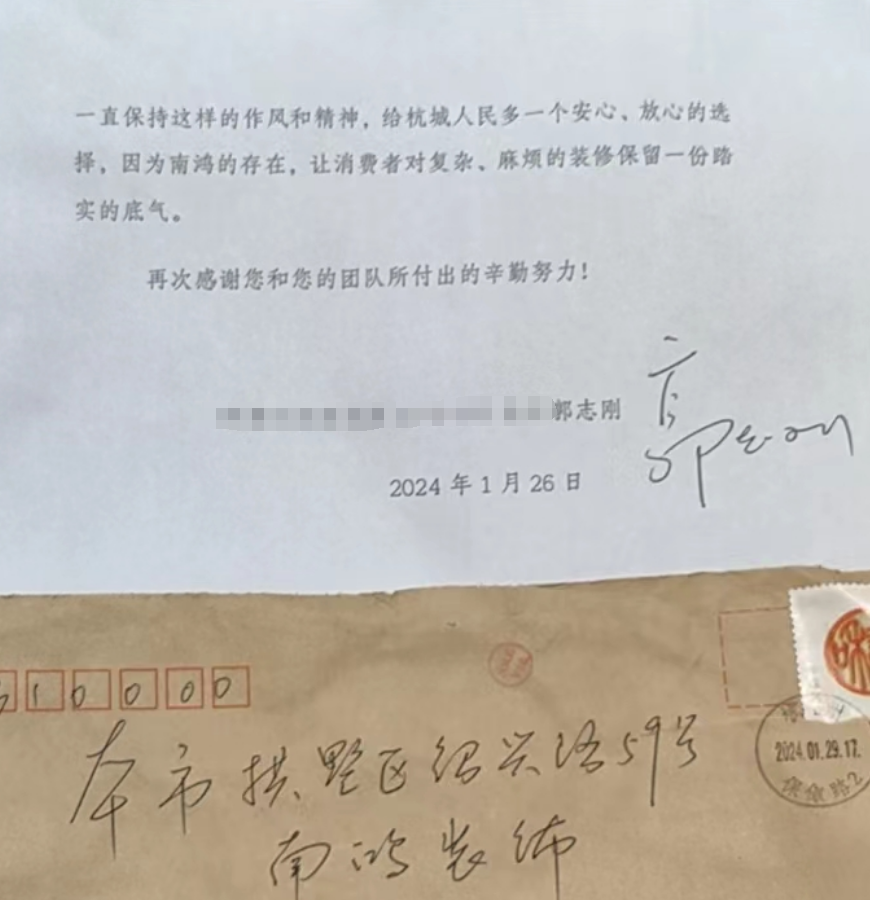 一直保持这样的作风和精神，给杭城人民多一个安心、放心的选
择，因为南鸿的存在，让消费者对复杂、麻烦的装修保留一份踏
实的底气。
再次感谢您和您的团队所付出的辛勤努力！
郭志刚
2024 年 1 月 26 日
310000
本市拱墅区绍兴路59号
南鸿装饰
2024.01.29.17.
保俶路2